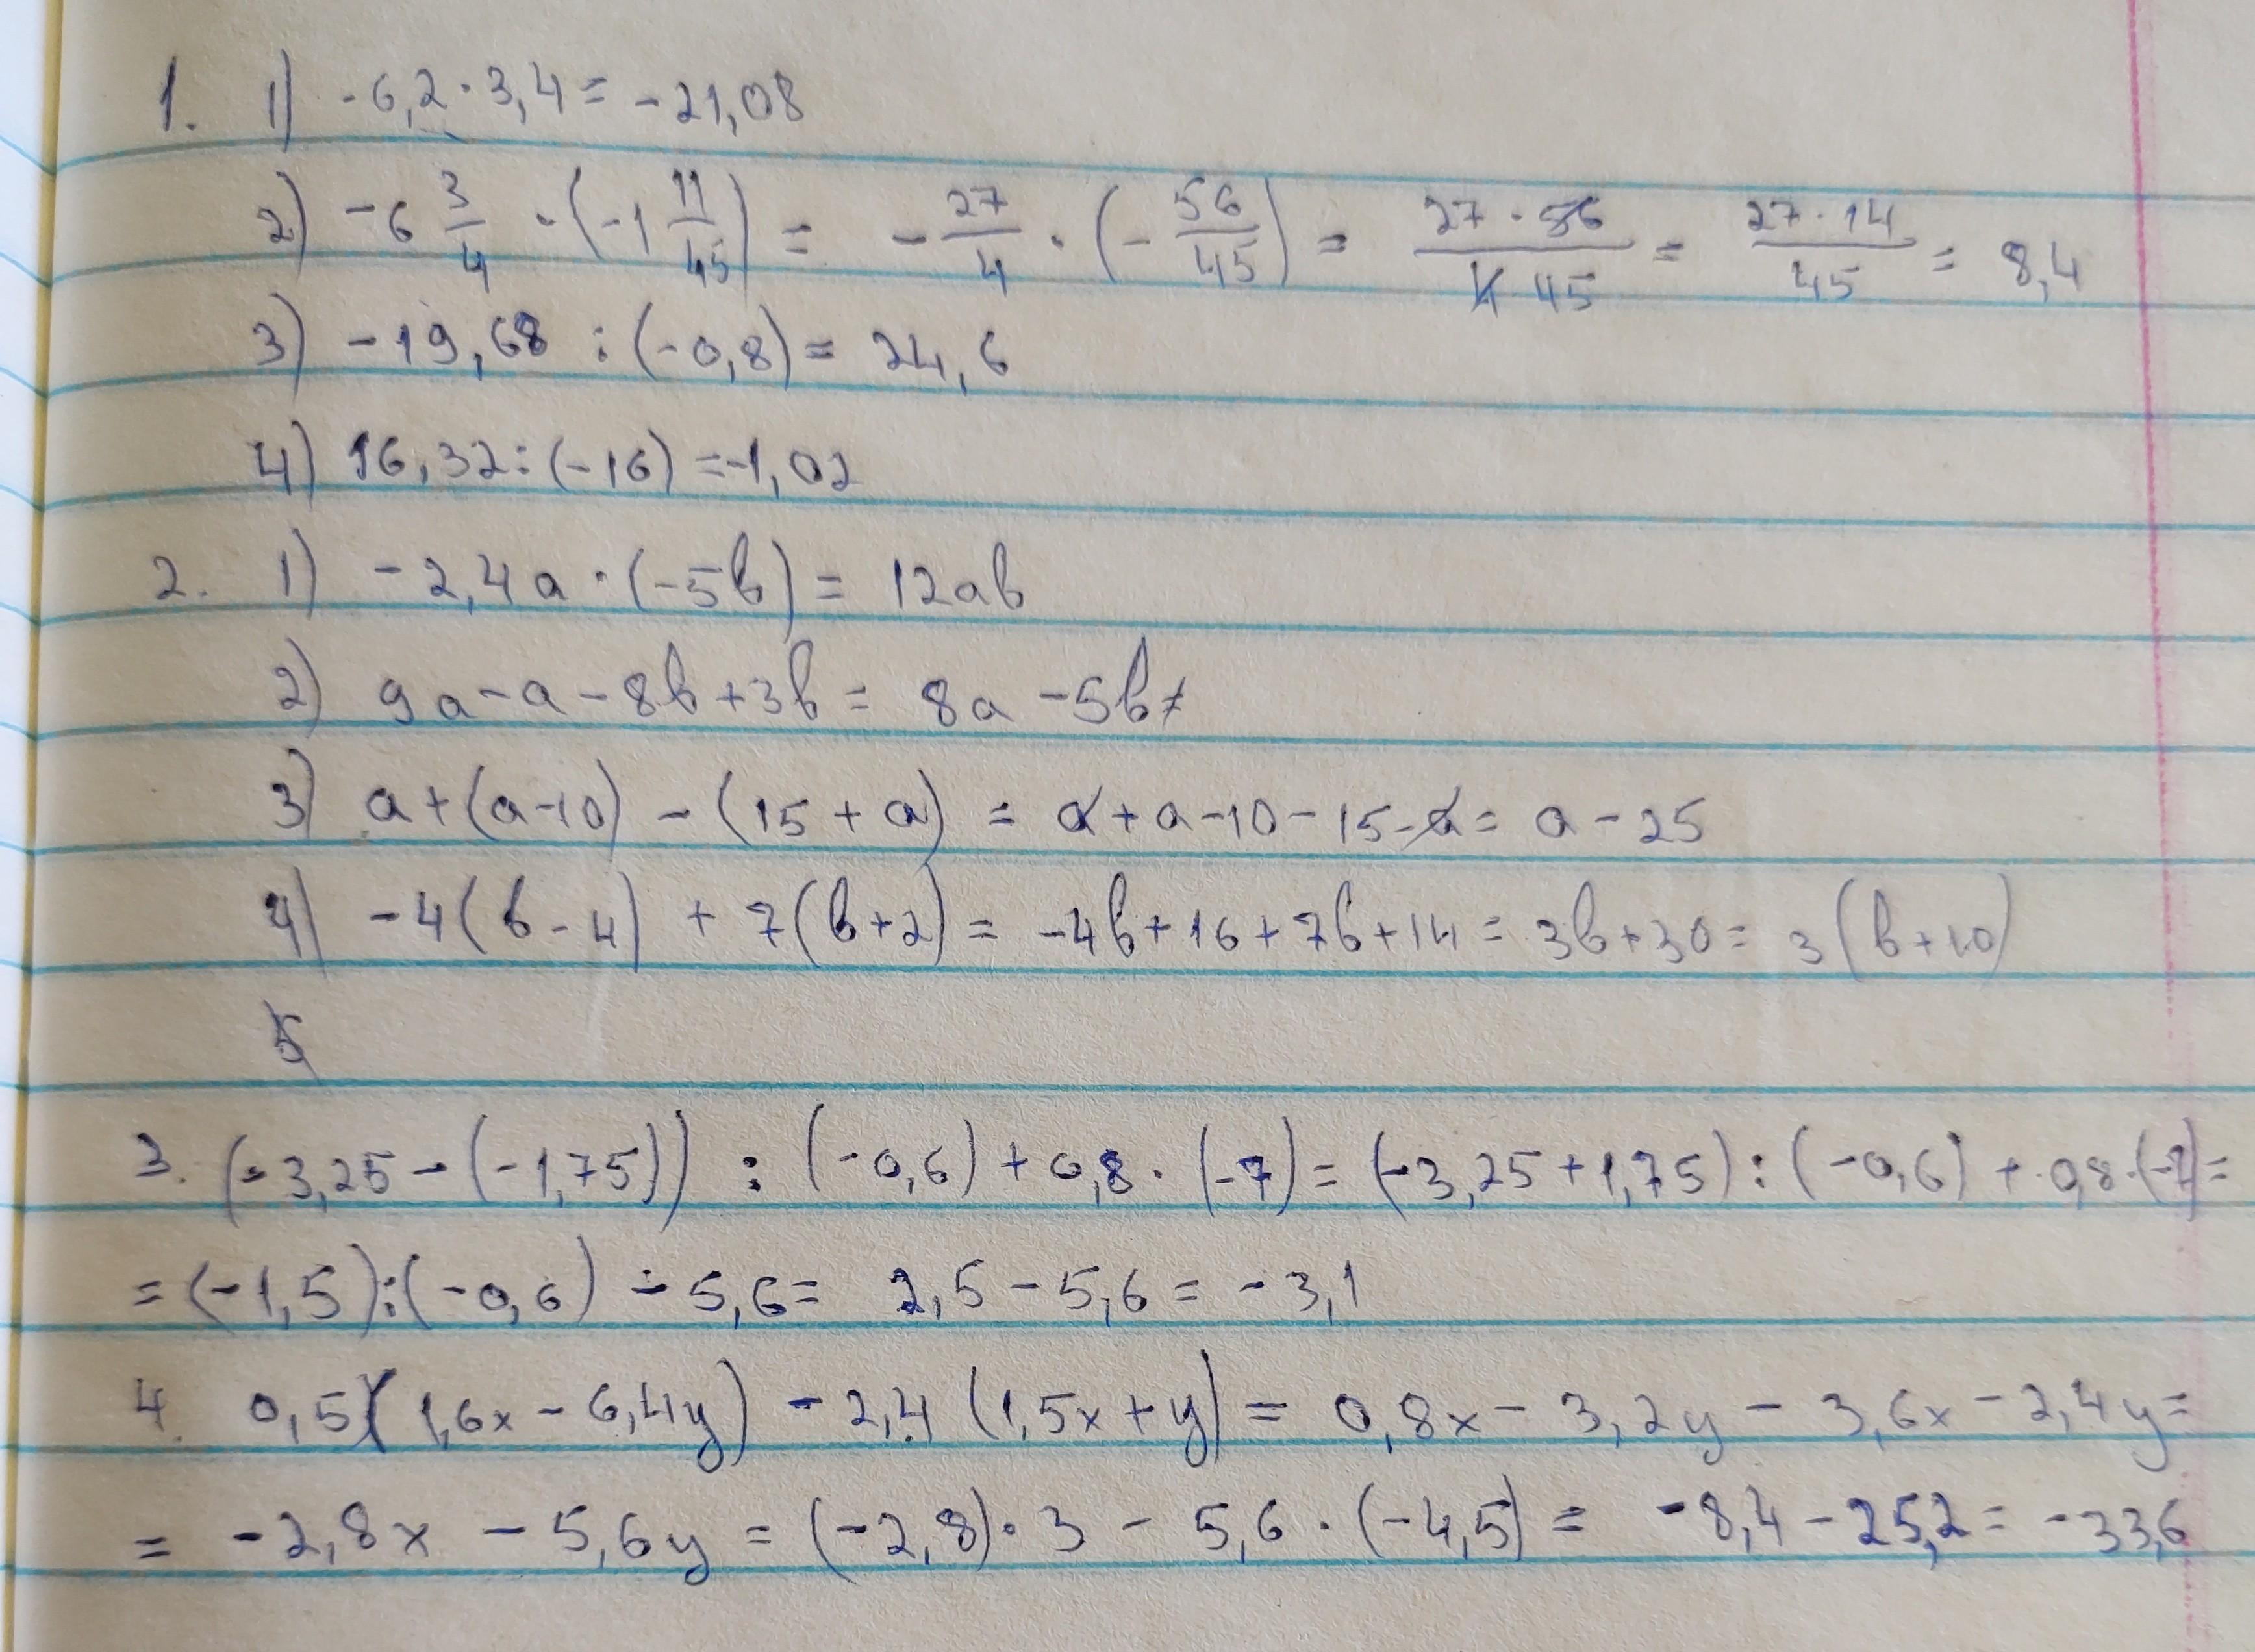 1. 1) -6,2·3,4 = -21,08
2) -6 3/4 · (-1 11/45) = -27/4 · (-56/45) = 27·56/4·45 = 27·14/45 = 8,4
3) -19,68 : (-0,8) = 24,6
4) 16,32 : (-16) = -1,02
2. 1) -2,4a · (-5b) = 12ab
2) 9a - a - 8b + 3b = 8a - 5b
3) a + (a-10) - (15 + a) = a + a - 10 - 15 - a = a - 25
4) -4(b - 4) + 7(b+2) = -4b + 16 + 7b + 14 = 3b + 30 = 3(b+10)
5
3. (-3,25 - (-1,75)) : (-0,6) + 0,8 · (-7) = (-3,25 + 1,75) : (-0,6) + 0,8·(-7) =
= (-1,5) : (-0,6) - 5,6 = 2,5 - 5,6 = -3,1
4. 0,5(1,6x - 6,4y) - 2,4 (1,5x + y) = 0,8x - 3,2y - 3,6x - 2,4y =
= -2,8x - 5,6y = (-2,8)·3 - 5,6 · (-4,5) = -8,4 - 25,2 = -33,6